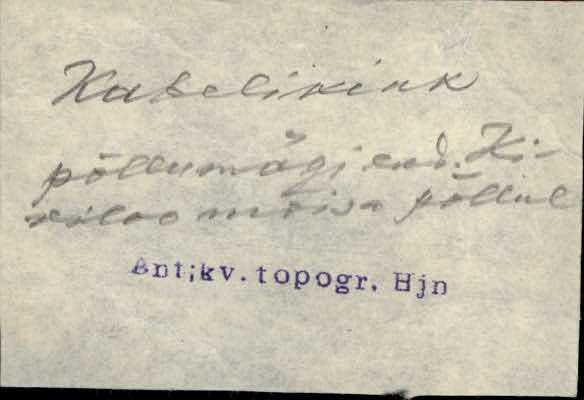 Kabelikink
põllumägi end. Ki-
viloo mõisa põllul
Ant;kv.topogr. Hjn